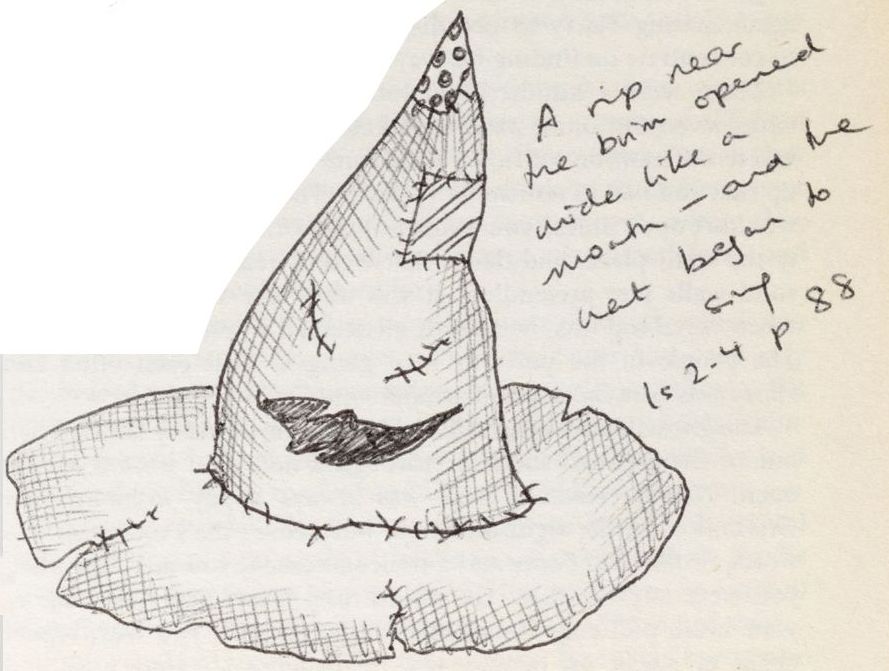 A rip near
the brim opened
wide like a
mouth – and the
hat began to
sing
ls 2-4 p 88